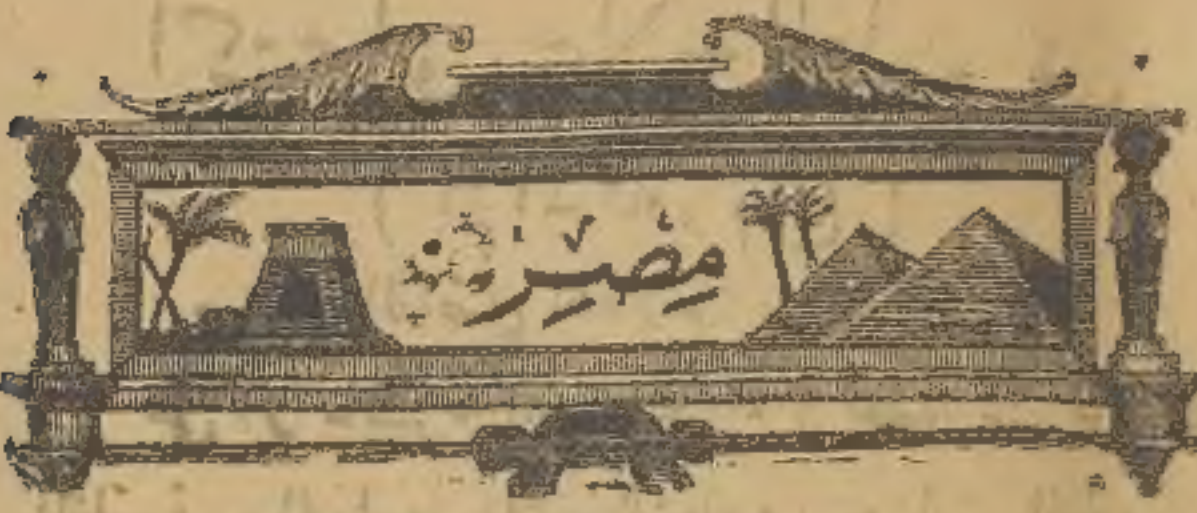 مصر